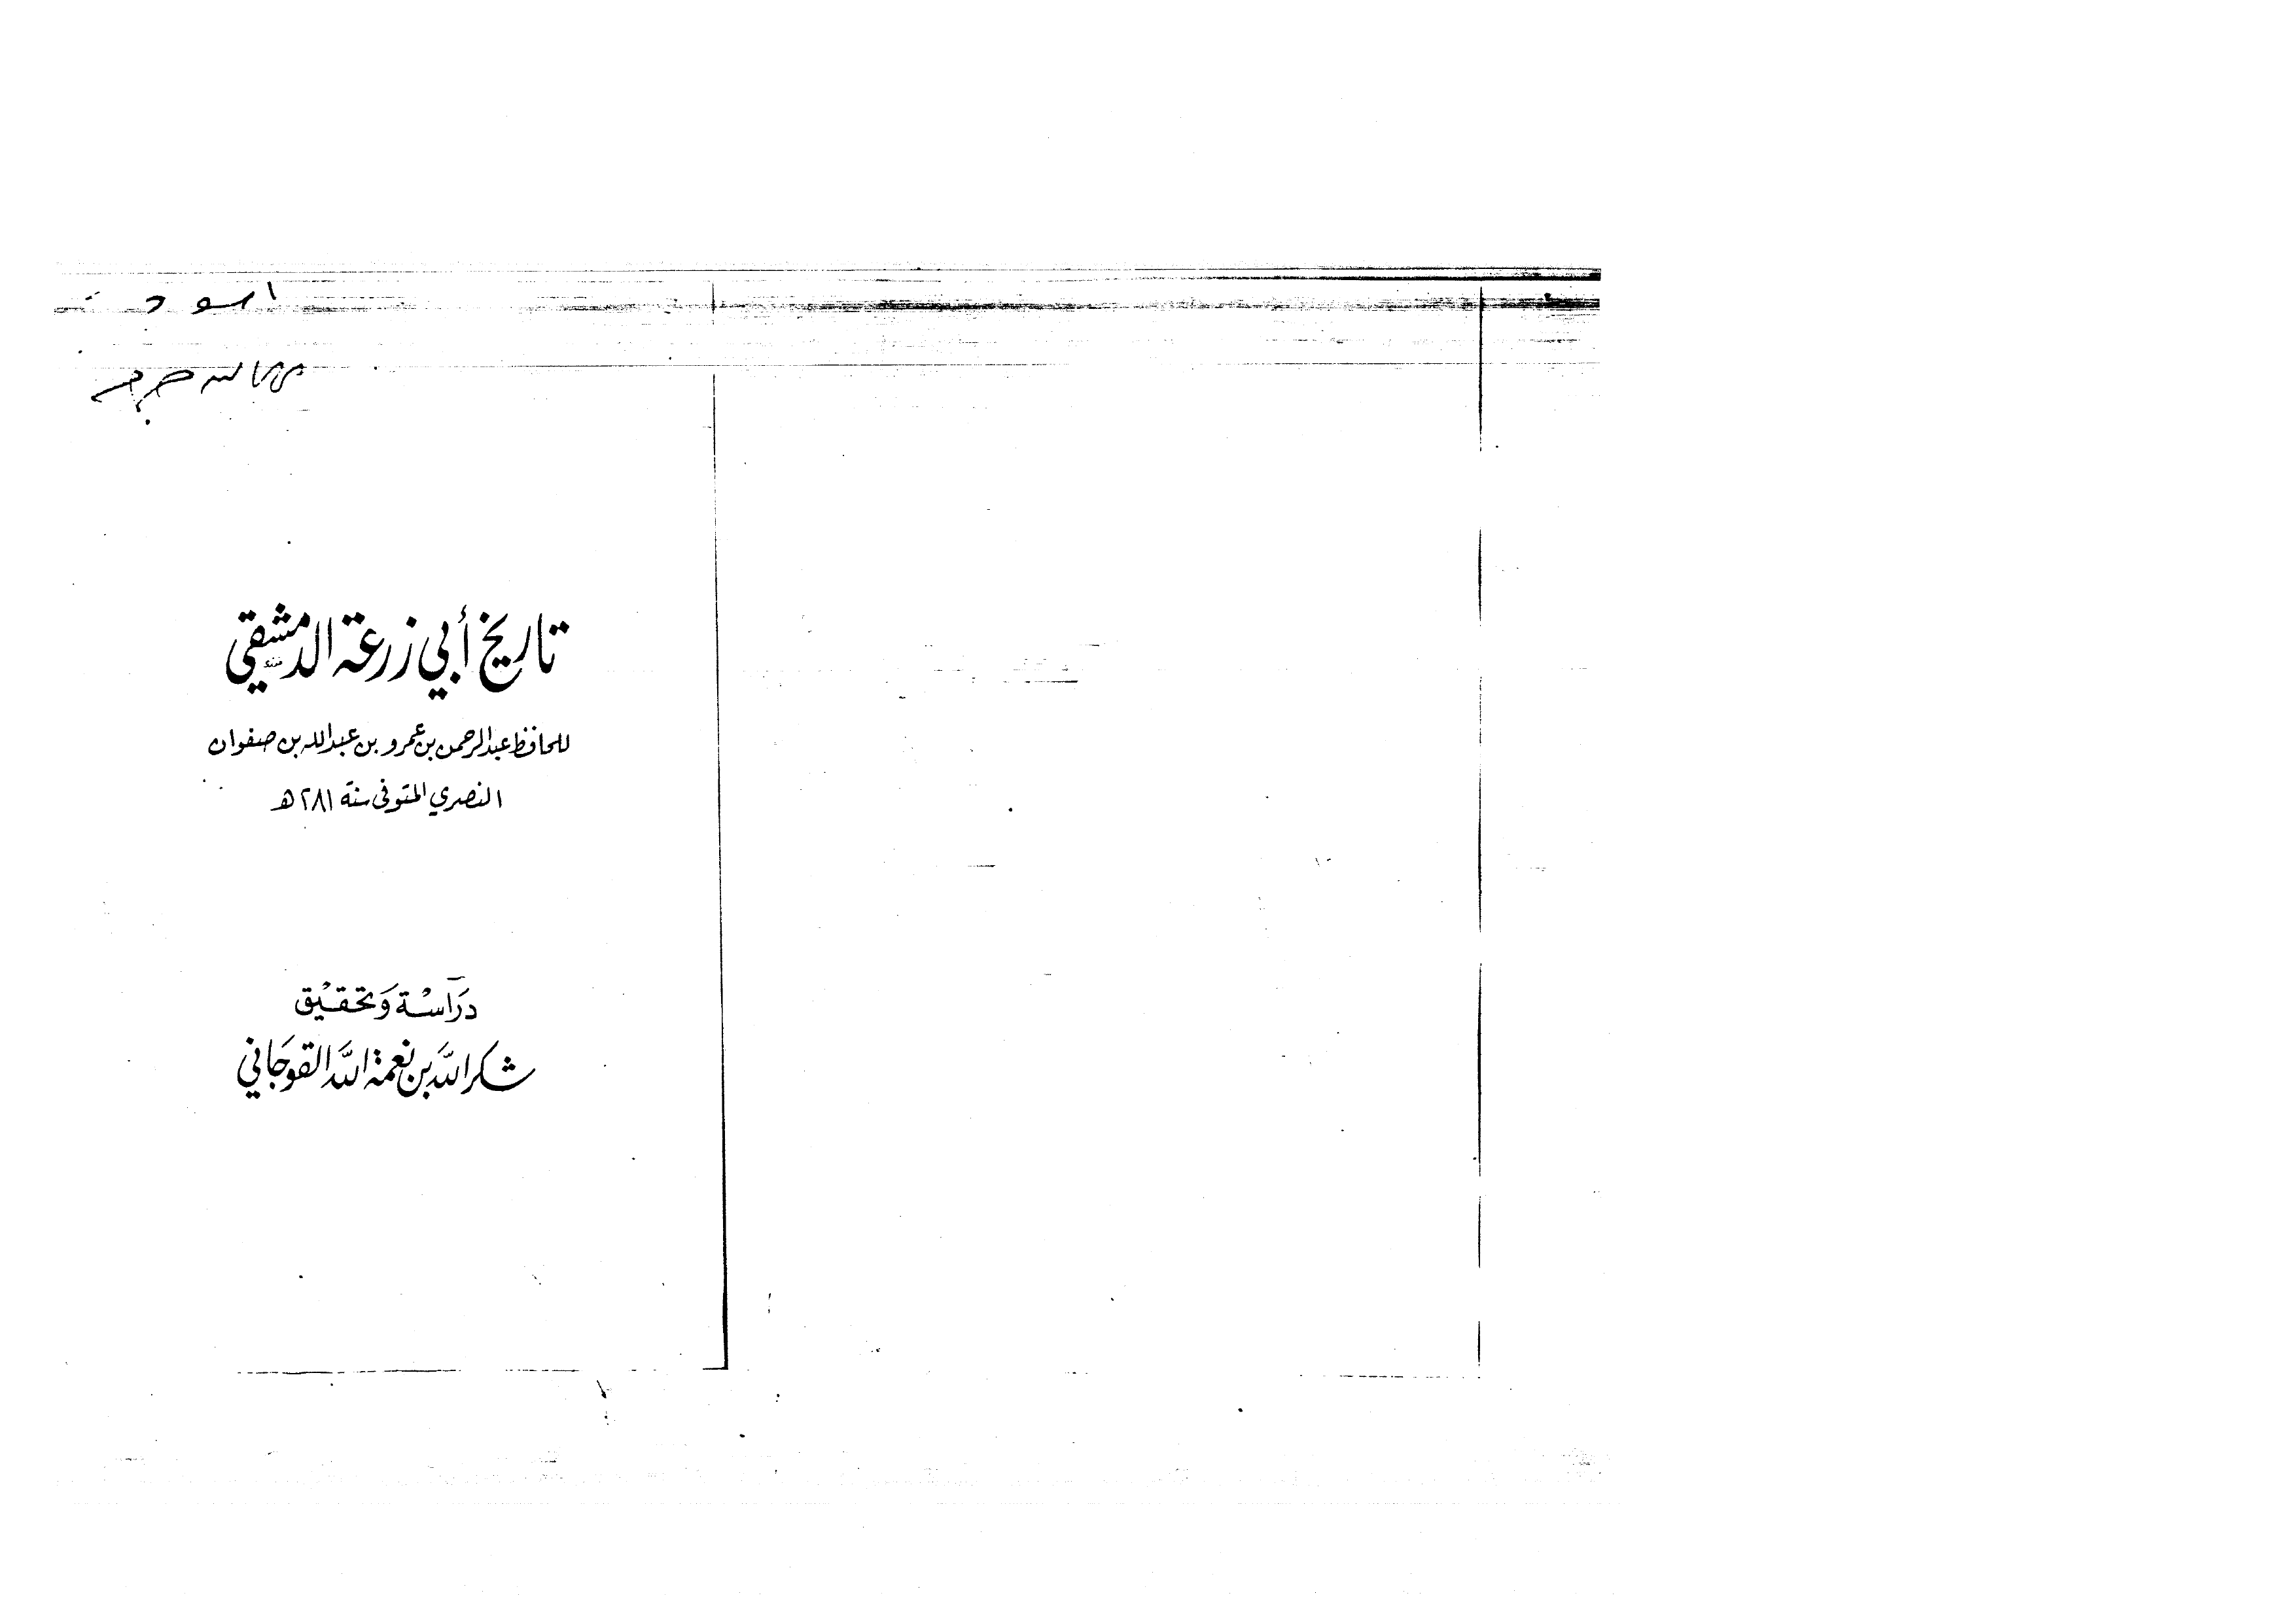 اسود
تاريخ أبي زرعة الدمشقي
للحافظ عبدالرحمن بن عمرو بن عبدالله بن صفوان
النصري المتوفى سنة ٢٨١ هـ
دَرَاسْة وَتحقْيْق
شكر اللّٰه بن نعمة اللّٰه القوجَاني